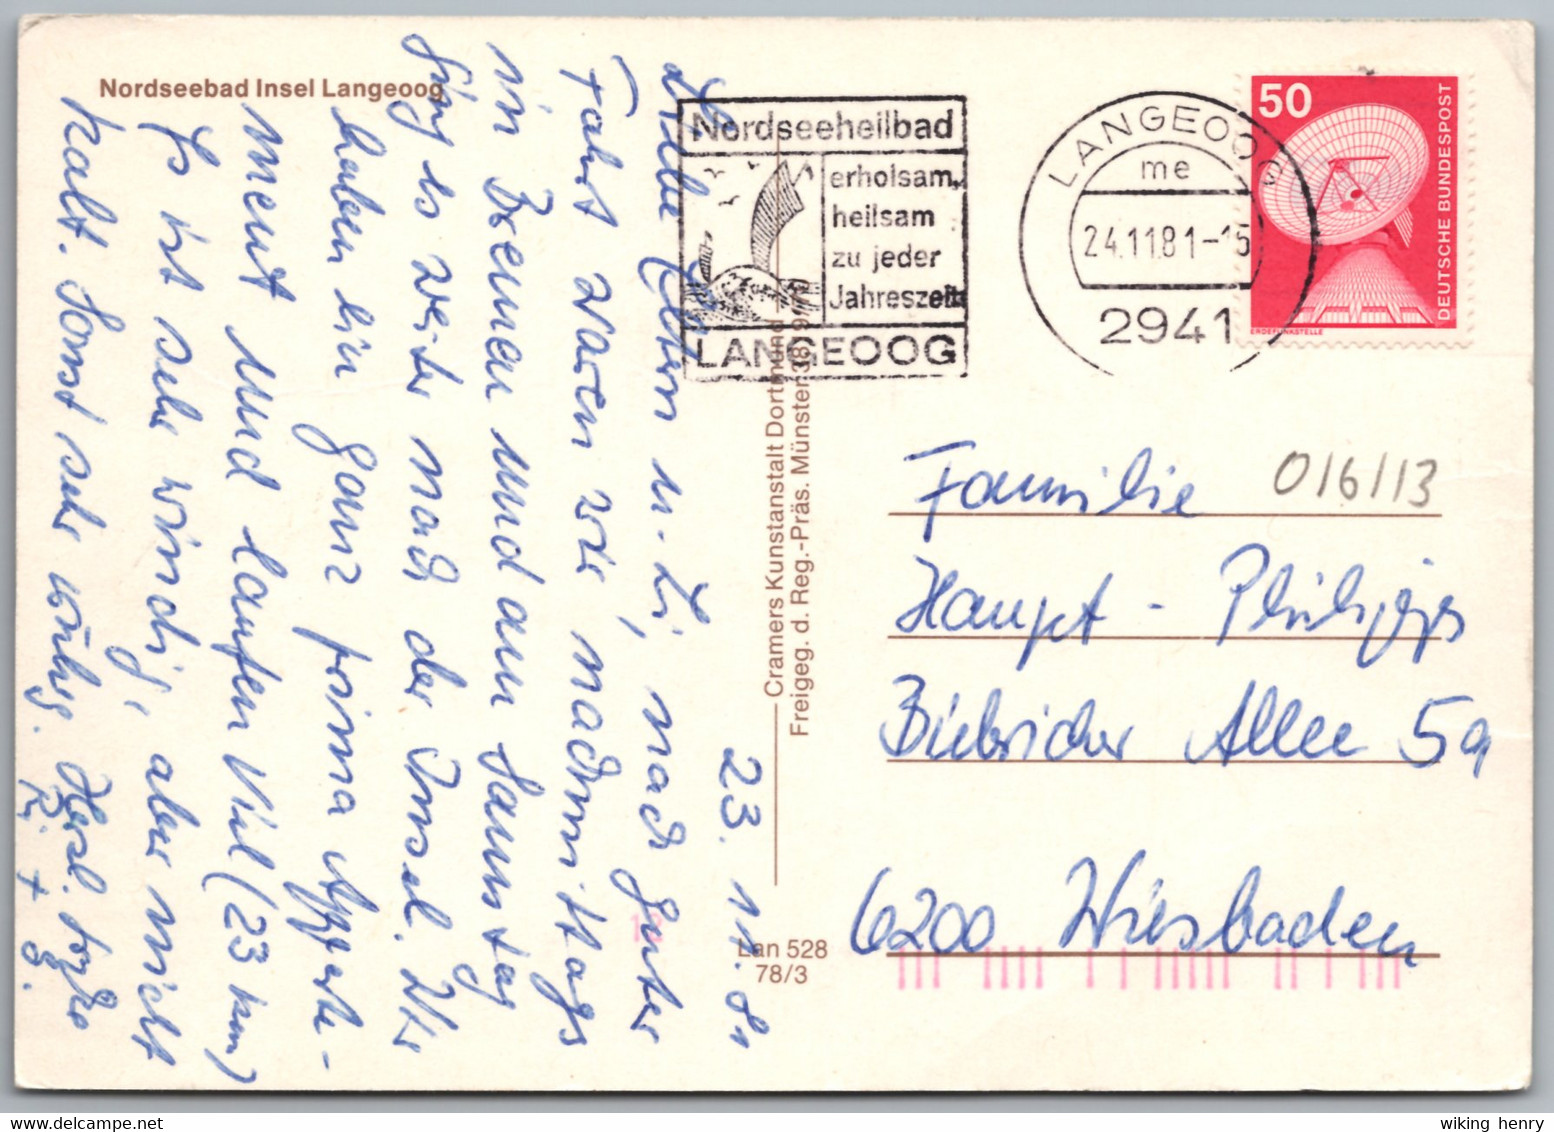 Nordseebad Insel Langeoog
23. 11. 81
Liebe Eltern u. Li, nach guter
Fahrt waren wir nachmittags
in Bremen und am Samstag
ging es weiter nach der Insel. Wir
haben ein ganz prima Apparte-
ment und laufen viel (23 km)
Es ist sehr windig, aber nicht
kalt. Sonst sehr ruhig. Herzl. Grüße
R. + G.
Nordseeheilbad
erholsam,
heilsam
zu jeder
Jahreszeit
LANGEOOG
LANGEOOG
me
24.11.81-15
2941
50
DEUTSCHE BUNDESPOST
ERDEFUNKSTELLE
Cramers Kunstanstalt Dortmund
Freigeg. d. Reg.-Präs. Münster
Lan 528
78/3
016/13
Familie
Haupt - Philipps
Biebricher Allee 59
6200 Wiesbaden
wiking henry